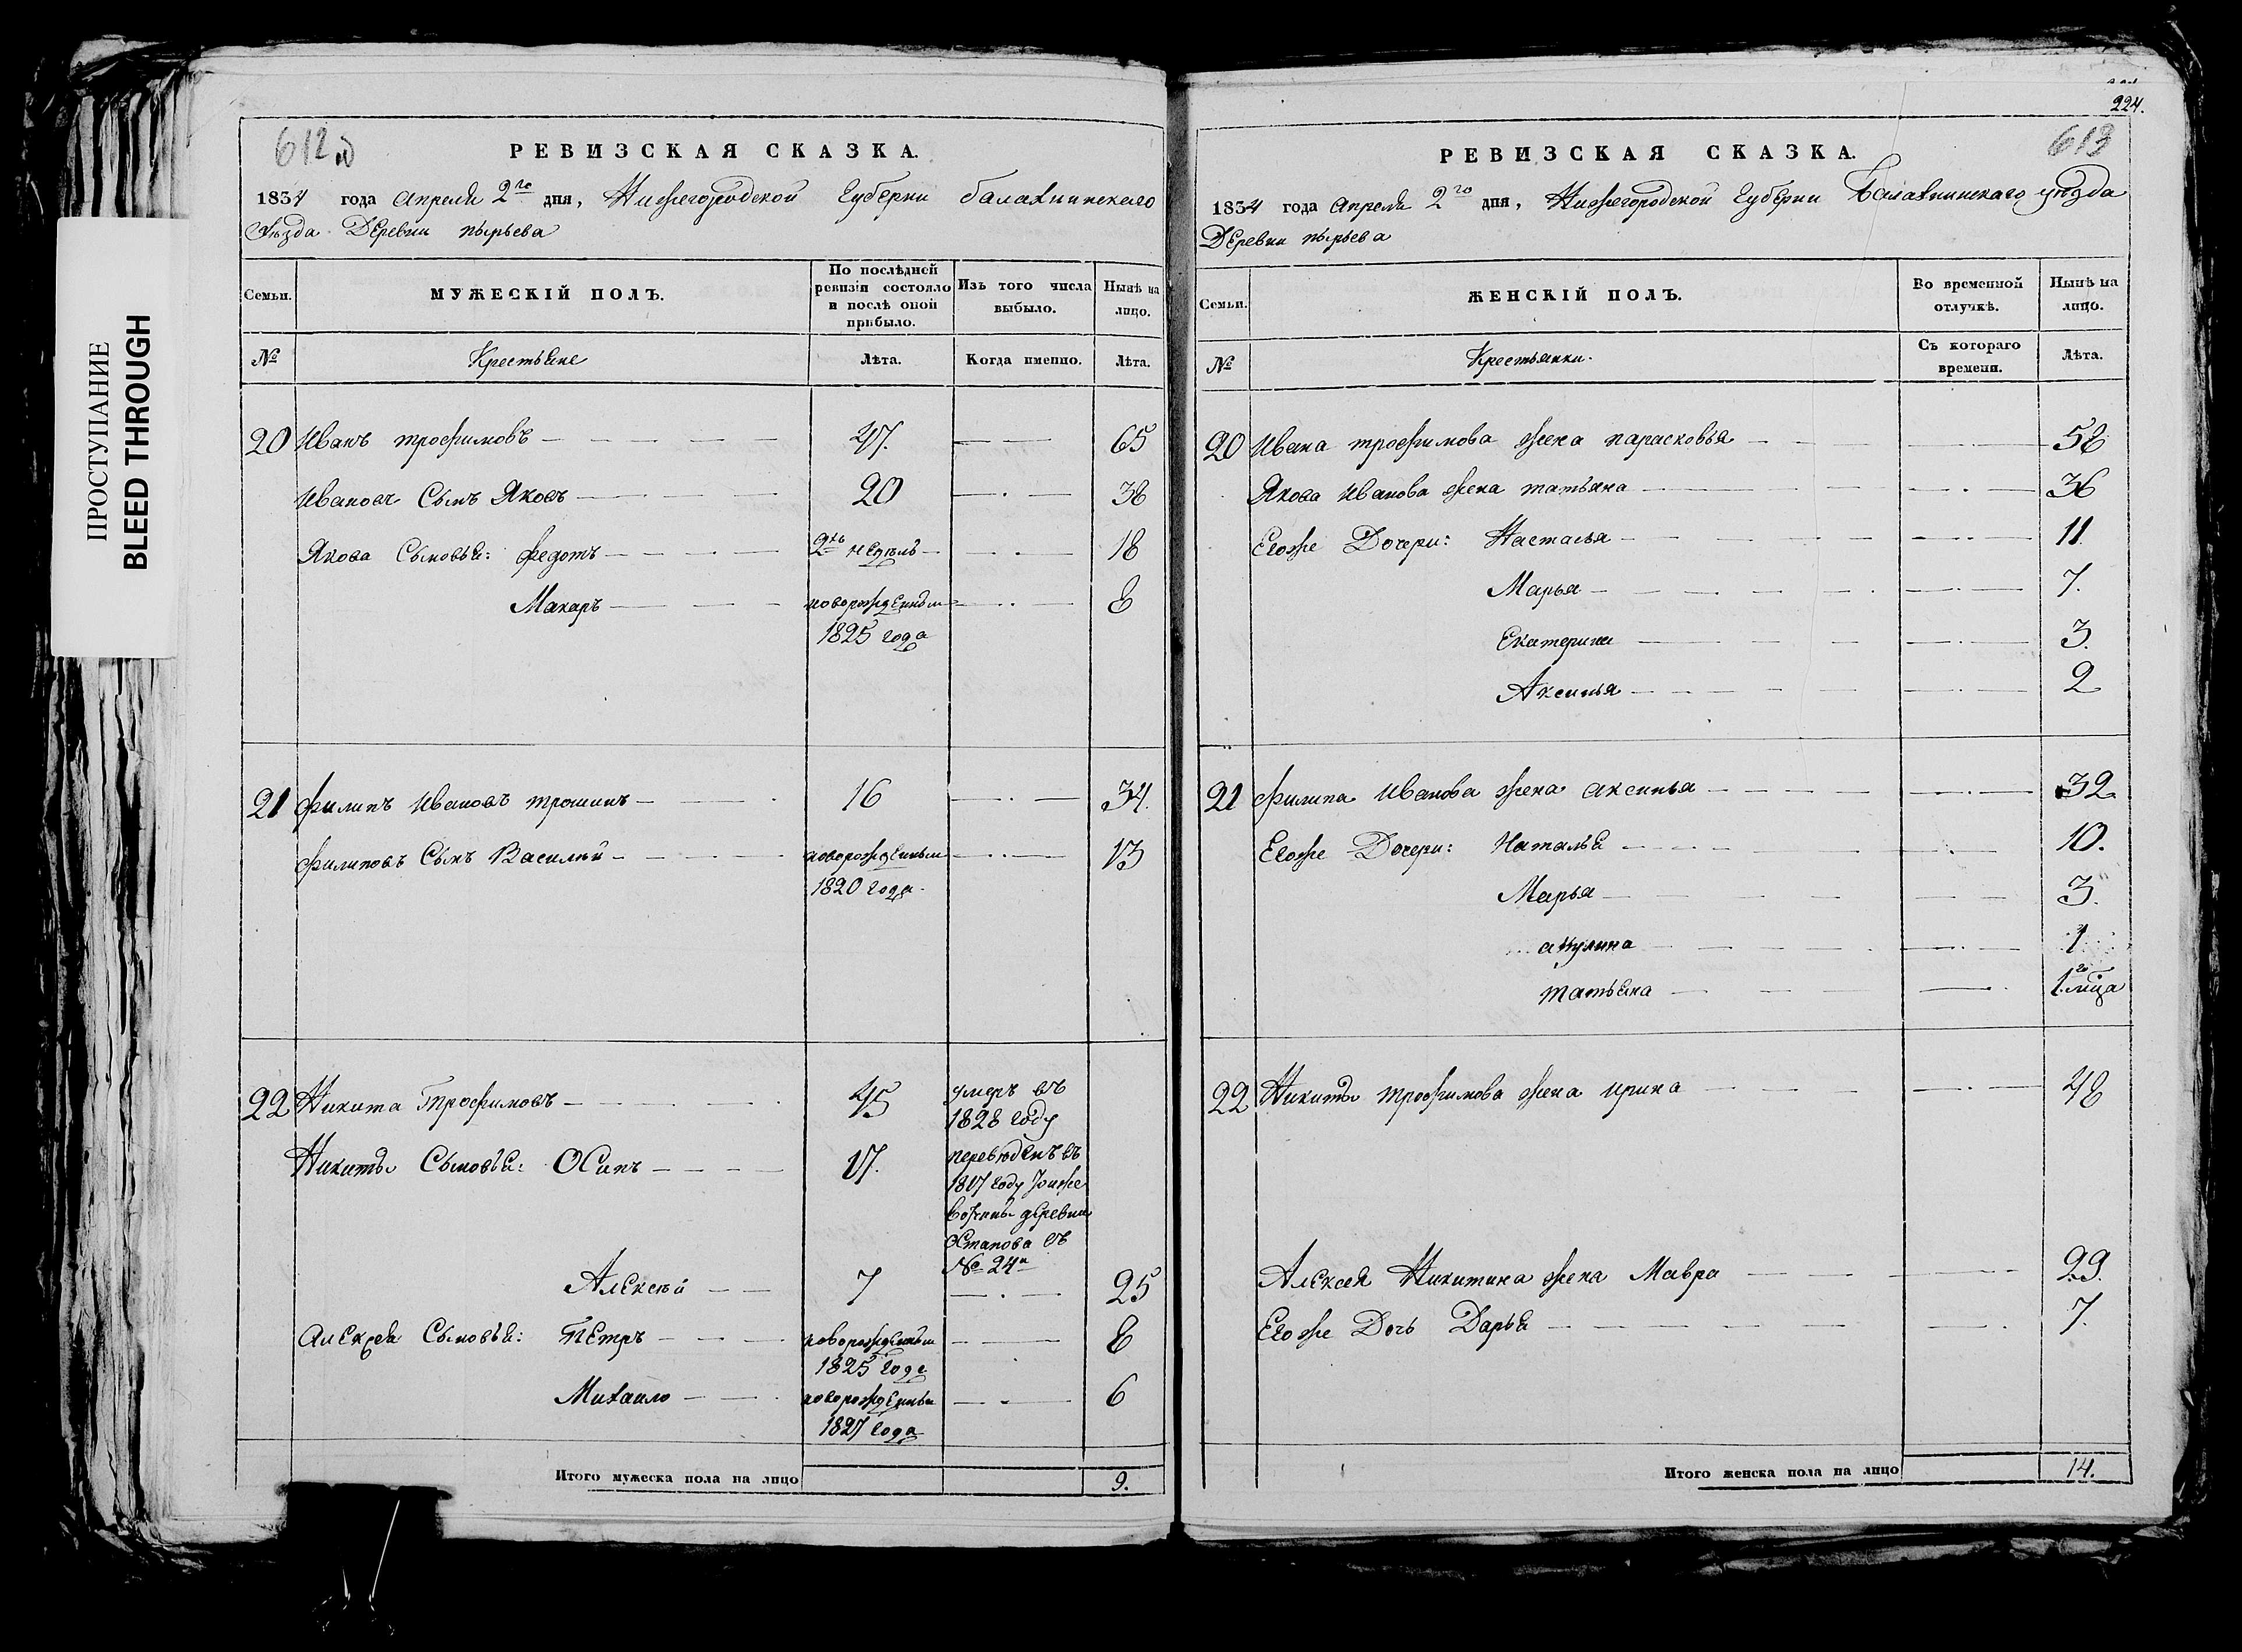 ПРОСТУПАНИЕ
BLEED THROUGH
612
РЕВИЗСКАЯ СКАЗКА.
1834 года апреля 2го дня, Нижегородской Губернии балахнинскаго
Уѣзда Деревни пырьева
Семьи. МУЖЕСКІЙ ПОЛЪ. По послѣдней ревизіи состояло и послѣ оной прибыло. Изъ того числа выбыло. Нынѣ на лицо.
№ Крестьяне Лѣта. Когда именно. Лѣта.
20 Иванъ трофимовъ 47. 65
Ивановъ Сынъ Яковъ 20 38
Якова Сыновья: федотъ 2хъ недѣль 18
Макаръ новорожденным 8
1825 года
21 филипъ Ивановъ трошинъ 16 34.
филиповъ Сынъ Василий новорожденным 13
1820 года
22 Никита Трофимовъ 45 умеръ въ
1828 году
Никиты Сыновья: Осипъ 17. переведенъ въ
1817 году
деревни
Остапова въ
№ 24й
Алексѣй 7 25
Алексея Сыновья: Петръ новорожденным 8
1825 года
Михаило новорожденным 6
1827 года
Итого мужеска пола на лицо 9.
224.
613
РЕВИЗСКАЯ СКАЗКА.
1834 года апреля 2го дня, Нижегородской Губернии Балахнинскаго уѣзда
Деревни пырьева
Семьи. ЖЕНСКІЙ ПОЛЪ. Во временной отлучкѣ. Нынѣ на лицо.
№ Крестьянки. Съ котораго времени. Лѣта.
20 Ивана трофимова жена парасковья 58
Якова Иванова жена татьяна 36
Егоже Дочери: Настасья 11
Марья 7.
Екатерина 3.
Аксинья 2
21 филипа Иванова жена аксинья 32
Егоже Дочери: Наталья 10.
Марья 3.
акулина 1
татьяна 1го мца
22 Никиты трофимова жена ирина 48
Алексея Никитина жена Мавра 29.
Егоже Дочь Дарья 7.
Итого женска пола на лицо 14.